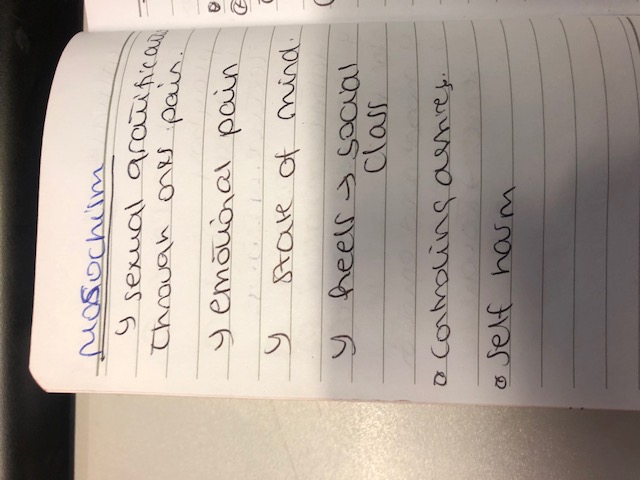 Masochism
↳ sexual gratification
through ones pain.
↳ emotional pain
↳ state of mind.
↳ heels → social
class
• Controling
• Self harm